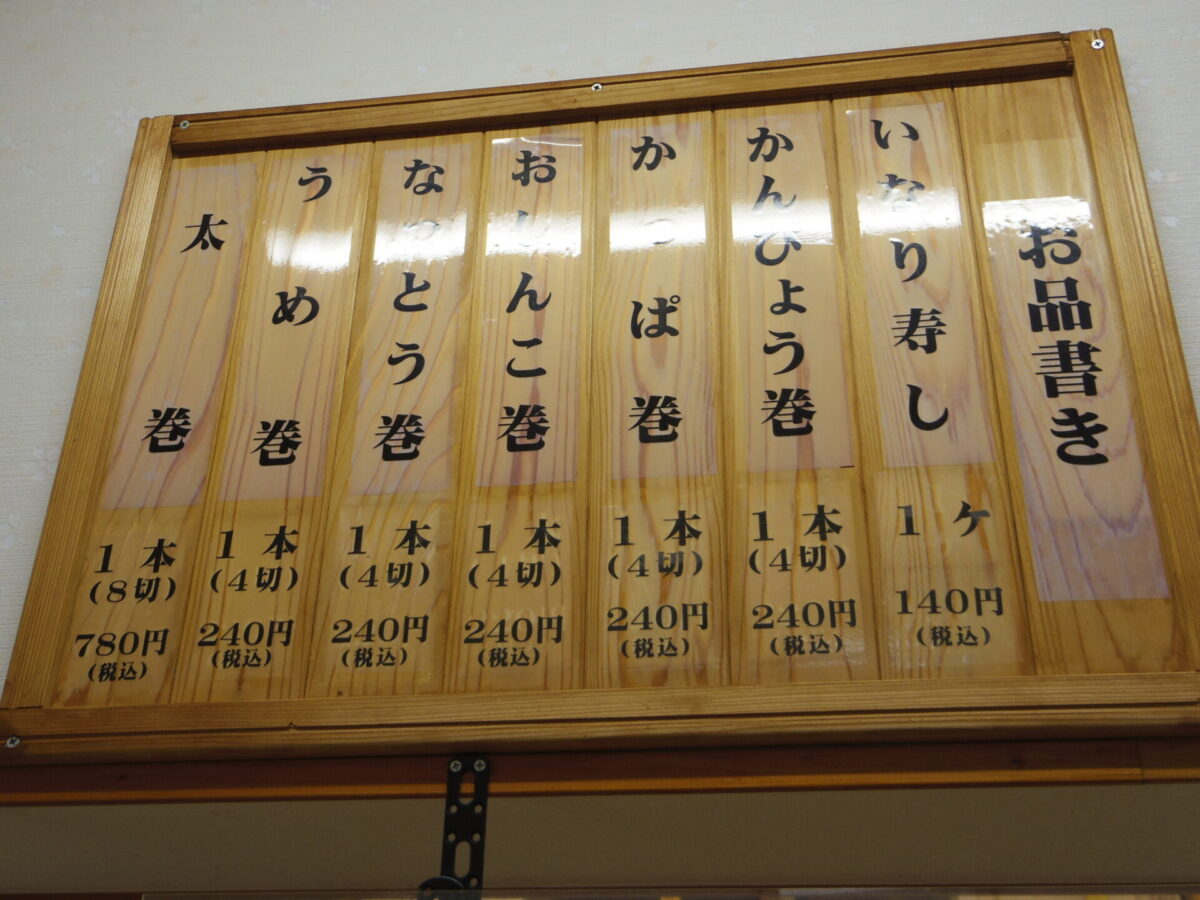 お品書き
いなり寿し
1ヶ
140円
(税込)
かんぴょう巻
1本
(4切)
240円
(税込)
かっぱ巻
1本
(4切)
240円
(税込)
おしんこ巻
1本
(4切)
240円
(税込)
なっとう巻
1本
(4切)
240円
(税込)
うめ巻
1本
(4切)
240円
(税込)
太巻
1本
(8切)
780円
(税込)